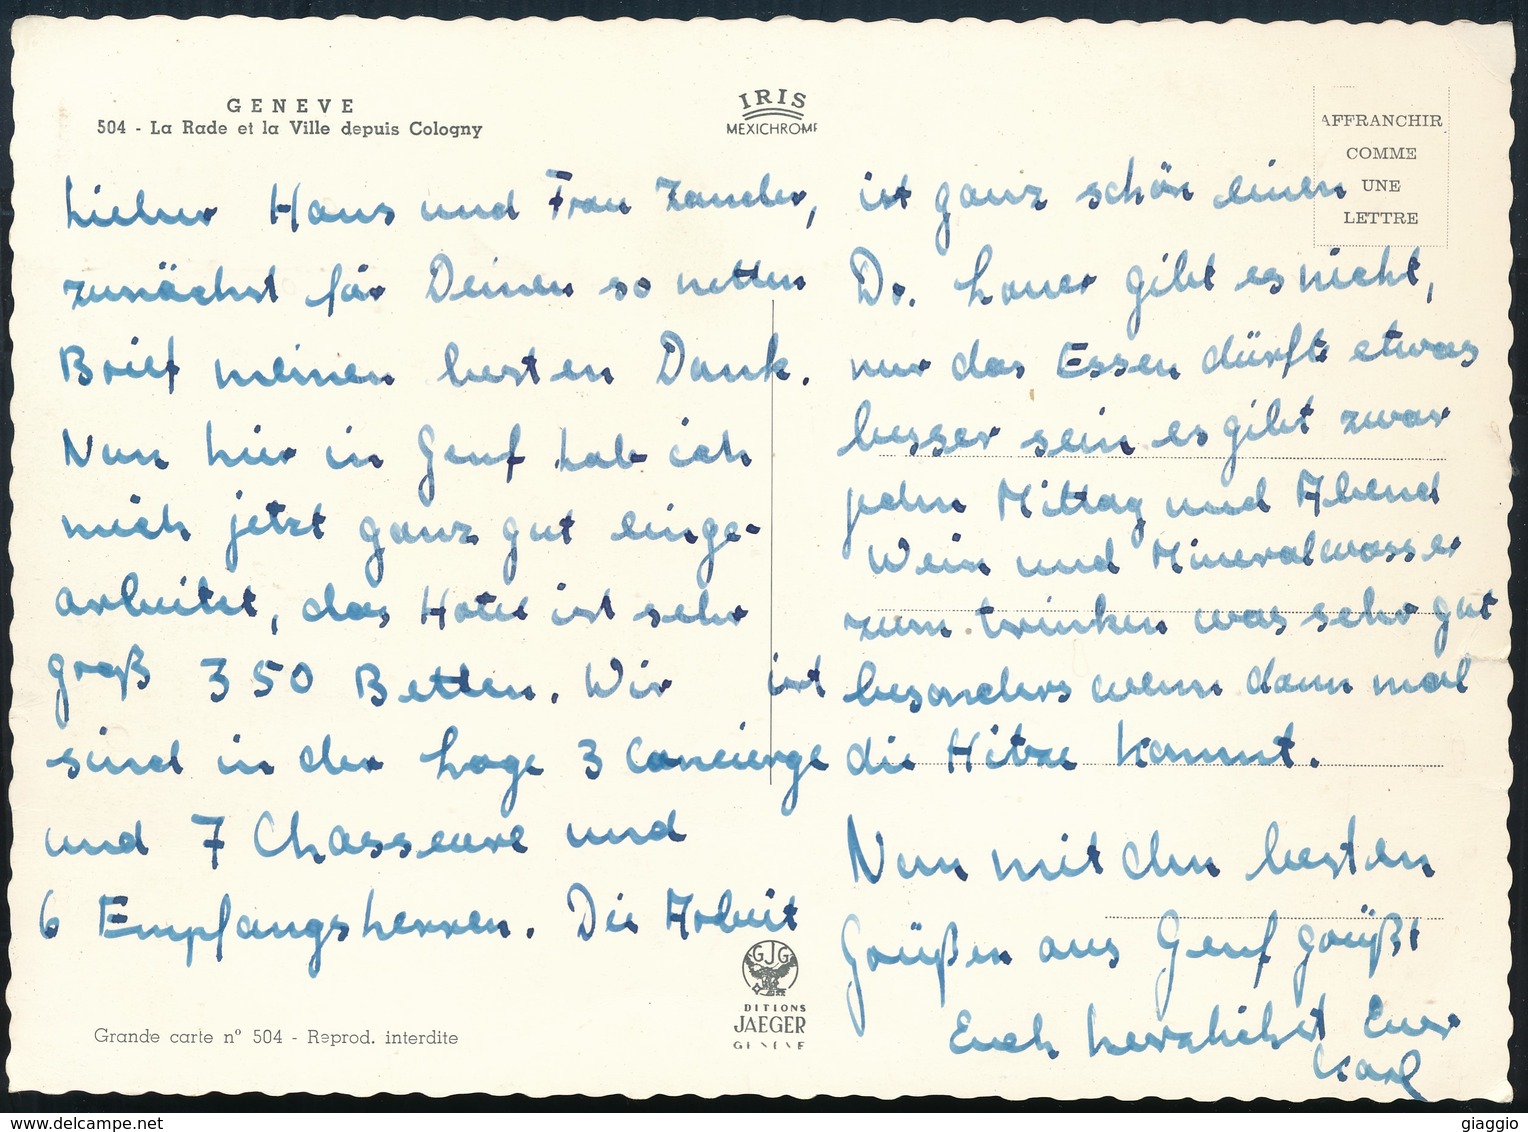 GENEVE
504 - La Rade et la Ville depuis Cologny
IRIS
MEXICHROME
AFFRANCHIR
COMME
UNE
LETTRE
Lieber Hans und Frau Zander,
zunächst für Deinen so netten
Brief meinen besten Dank.
Nun hier in Genf hab ich
mich jetzt ganz gut einge-
arbeitet, das Hotel ist sehr
groß 350 Betten. Wir ist
sind in der Loge 3 Concierge
und 7 Chasseure und
6 Empfangsherren. Die Arbeit
ist ganz schön einen
Dr. Lauer gibt es nicht,
nur das Essen dürfte etwas
besser sein es gibt zwar
jeden Mittag und Abend
Wein und Mineralwasser
zum trinken was sehr gut
besonders wenn dann mal
die Hitze kommt.
Nun mit den besten
Grüßen aus Genf grüßt
Euch herzlichst Euer
Karl
GJG
DITIONS
JAEGER
GENEVE
Grande carte n° 504 - Reprod. interdite
www.delcampe.net
giaggio